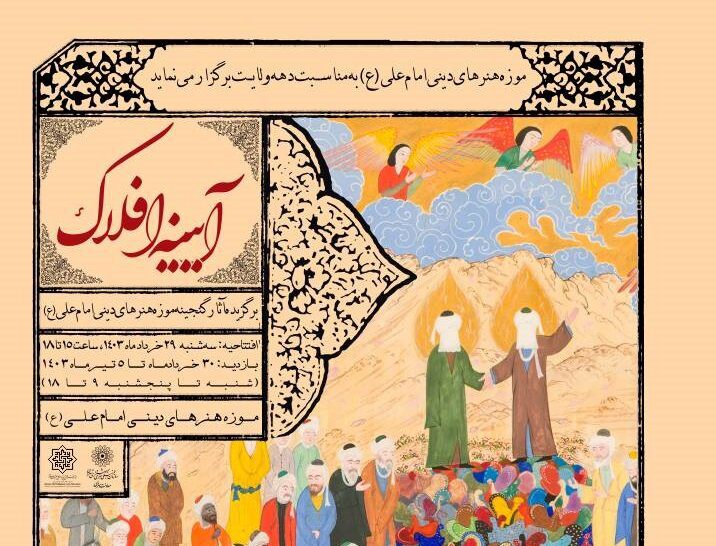 موزه هنرهای دینی امام علی (ع) به مناسبت دهه ولایت برگزار می‌نماید
آیینه افلاک
برگزیده آثار گنجینه موزه هنرهای دینی امام علی (ع)
افتتاحیه: سه‌شنبه ۲۹ خرداد ماه ۱۴۰۳، ساعت ۱۵ تا ۱۸
بازدید: ۳۰ خرداد ماه تا ۵ تیر ماه ۱۴۰۳
(شنبه تا پنجشنبه ۹ تا ۱۸)
موزه هنرهای دینی امام علی (ع)